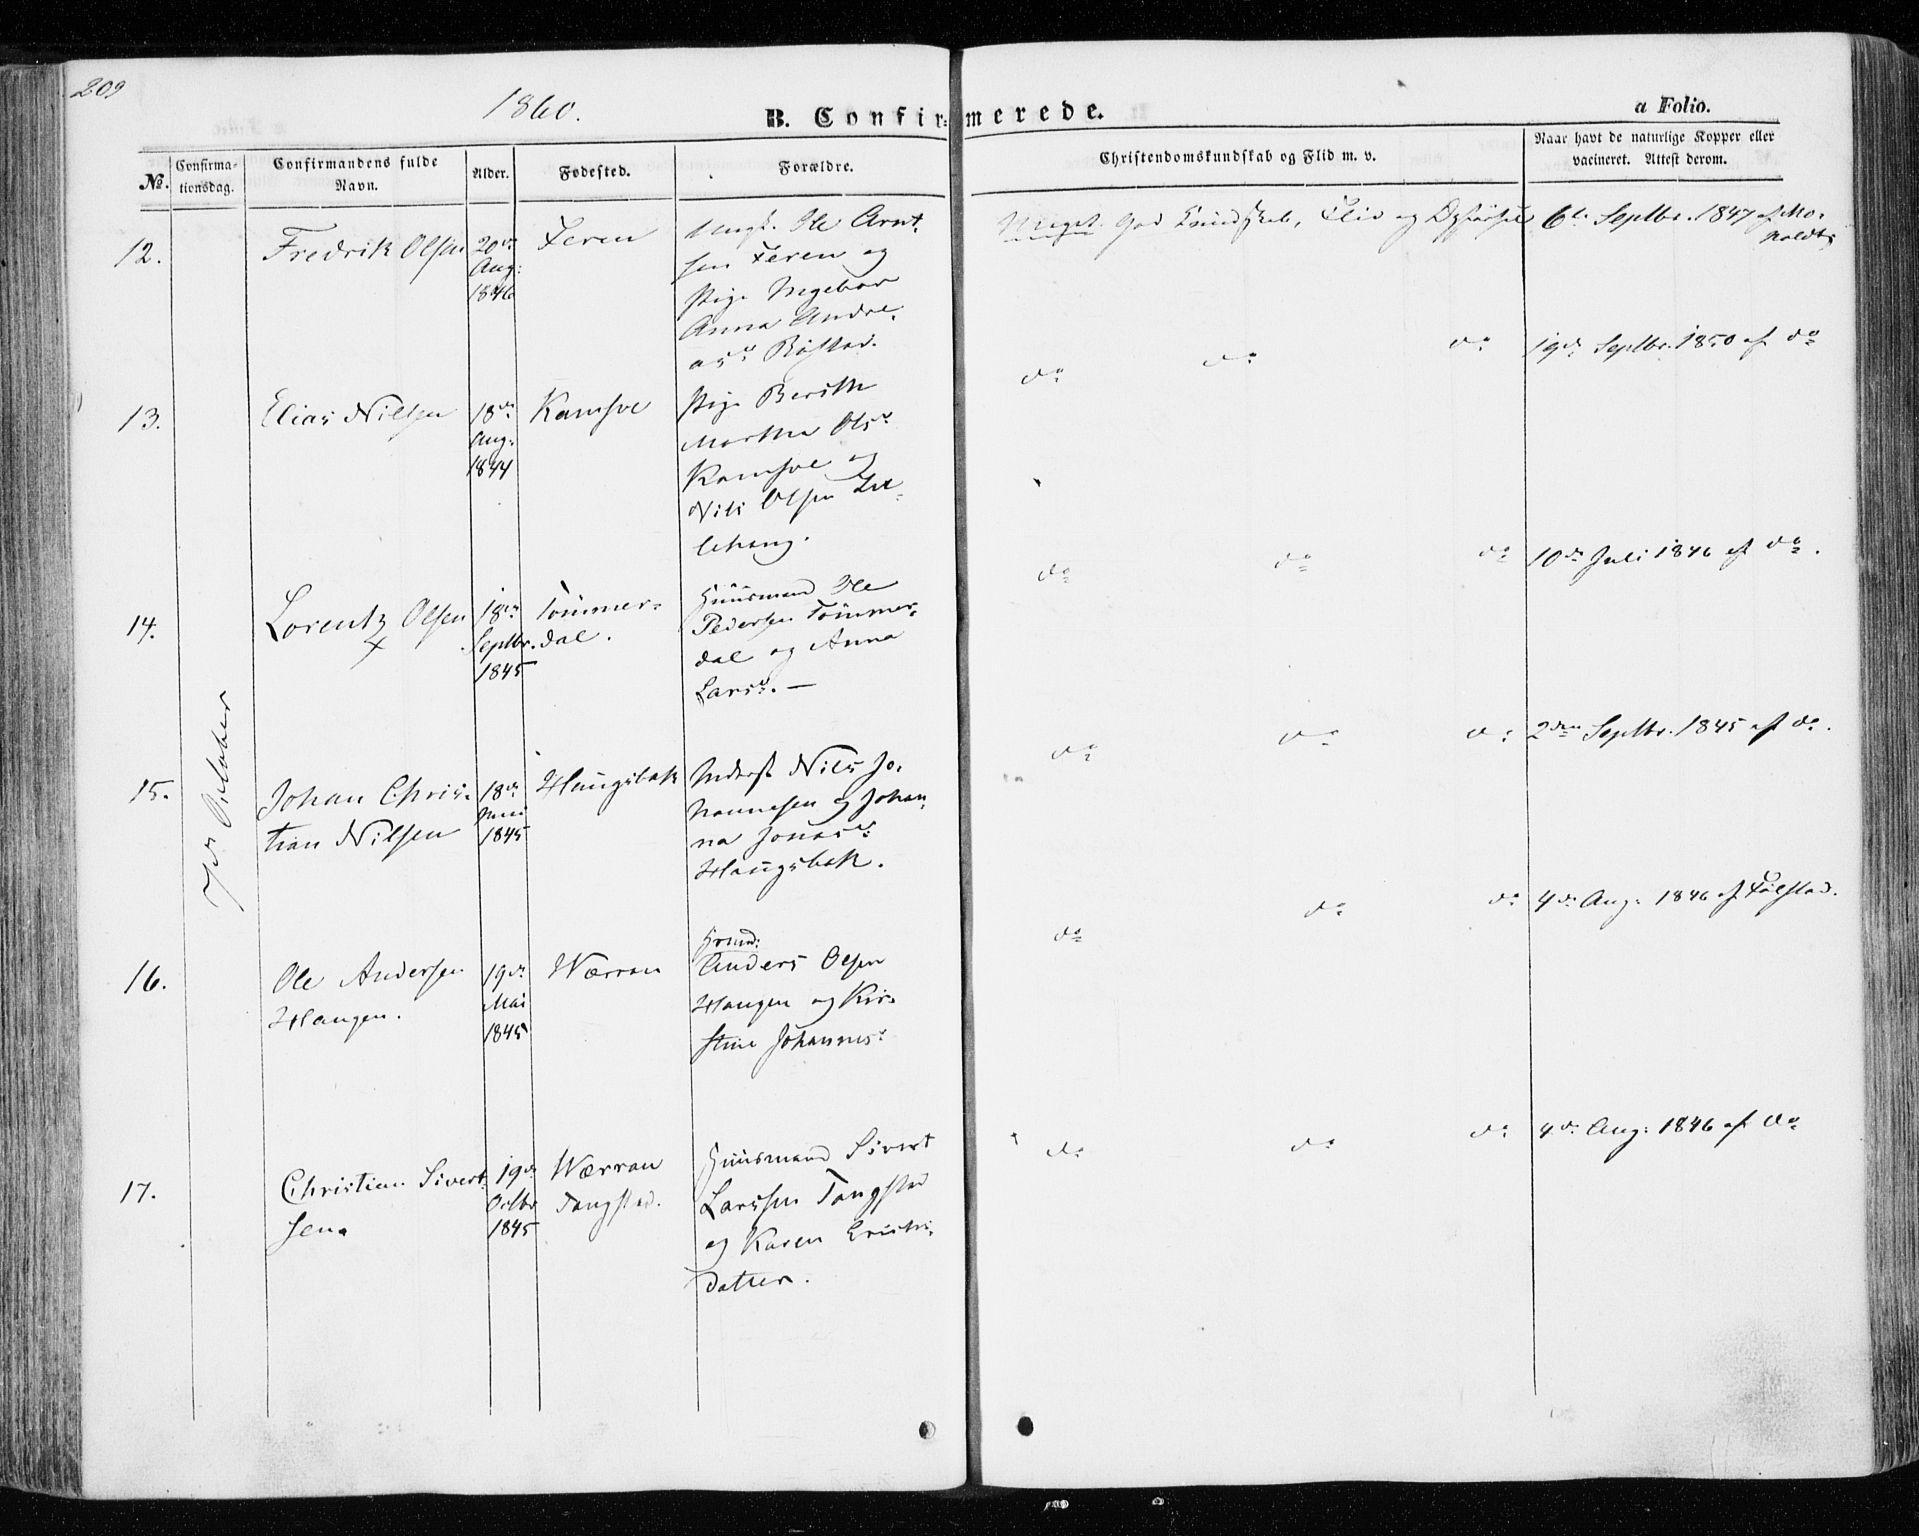 209
1860.
B. Confirmerede.
a Folio.
No.
Confirma-
tionsdag.
Confirmandens fulde
Navn.
Alder.
Fødested.
Forældre.
Christendomskundskab og Flid m. v.
Naar havt de naturlige Kopper eller
vacineret. Attest derom.
7de October
12.
Fredrik Olsen
20de
Aug:
1846
Feren
Ungk. Ole Arnt-
sen Feren og
Pige Ingebor
Anna Andre-
Meget god Kundskab, Flid og Opførsel
6te Septbr. 1847 af
13.
Elias Nilsen
18de
Aug:
1844
Kamsve
Pige Berith
Martha Olsd.
Kamsve og
Nils Olsen
do do do
19de Septbr. 1850 af do
14.
Lorentz Olsen
18de
Septbr.
1845
Tømmer-
dal.
Huusmand Ole
Pedersen Tømmer-
dal og Anna
Larsd. —
do do do
10de Juli 1846 af do.
15.
Johan Chris-
tian Nilsen
18de
1845
Haugsbak
Inderst Nils Jo-
hannesen og Johan-
na Jonasd:
Haugsbak.
do do do
2den Septbr. 1845 af do.
16.
Ole Andersen
Haugen.
19de
Mai
1845
Wærran
Anders Olsen
Haugen og Kir-
stine Johannesd.
do do do
4de Aug: 1846 af Følstad.
17.
Christian Sivert-
sen.
19de
Octbr
1845
Wærran
Tangstad.
Huusmand Sivert
Larssen Tangstad
og Karen Erichs-
datter.
do do do
4de Aug: 1846 af do